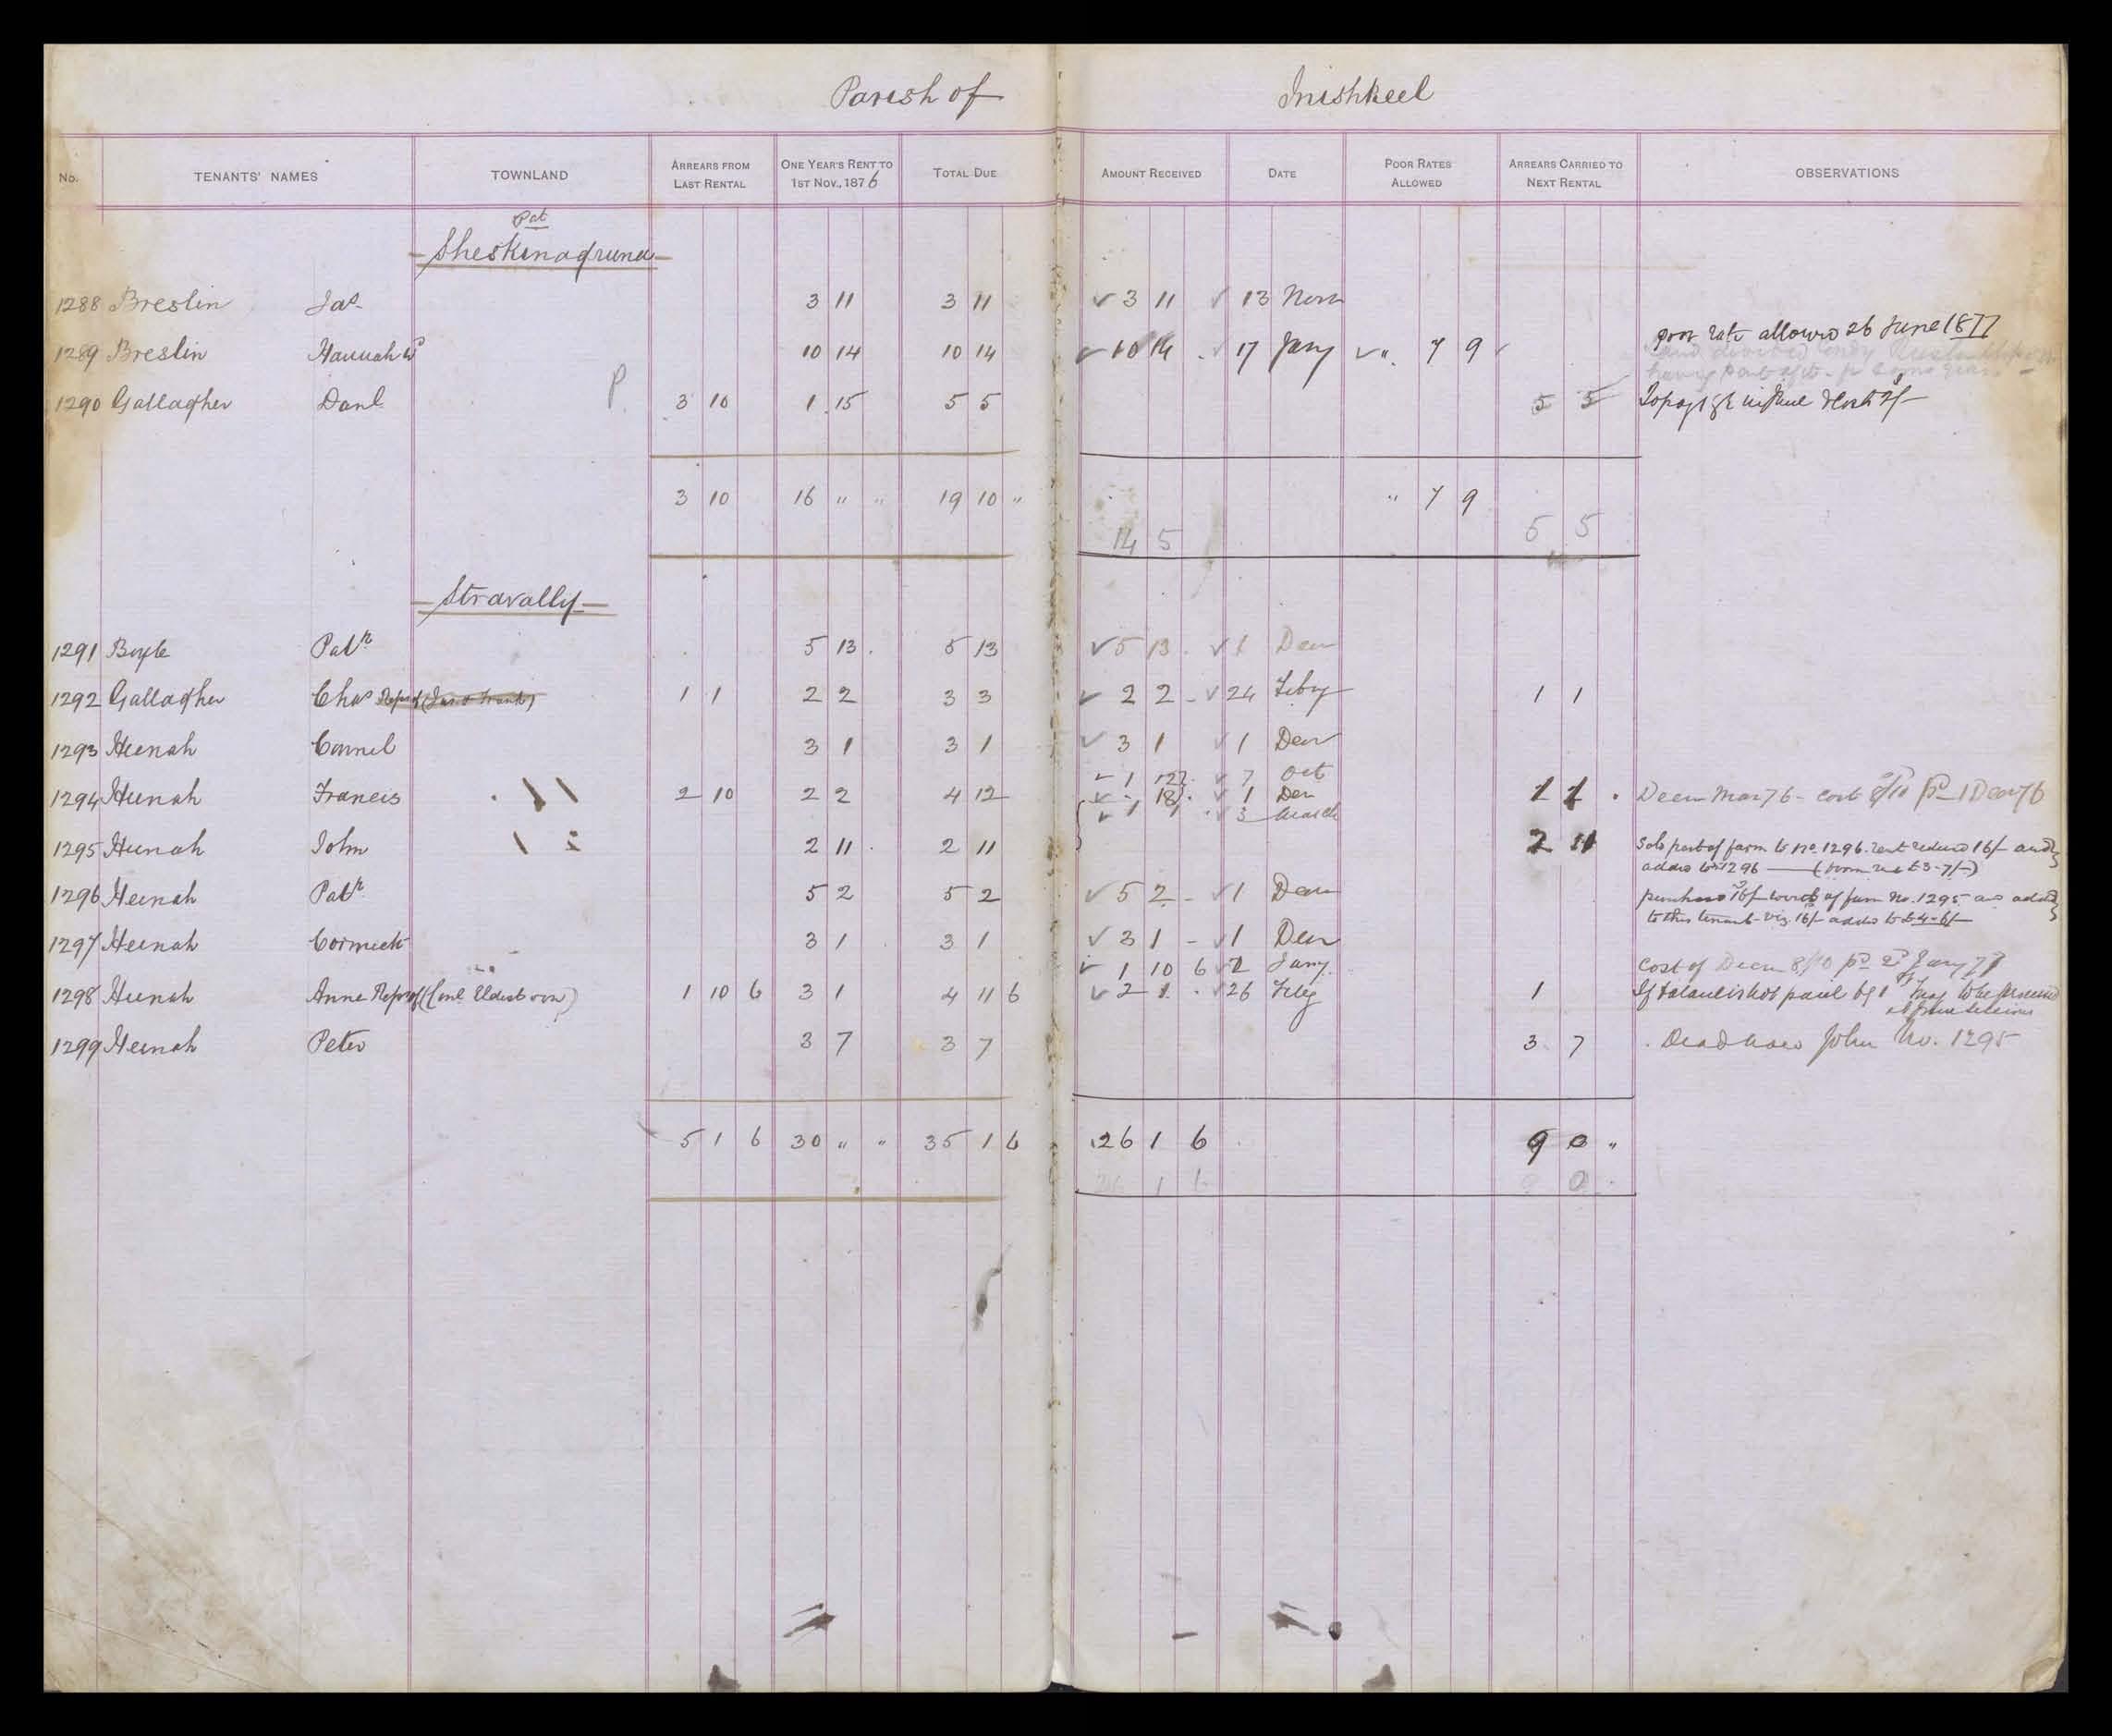 Parish of Inishkeel
No. TENANTS' NAMES TOWNLAND ARREARS FROM LAST RENTAL ONE YEAR'S RENT TO 1ST NOV., 1876 TOTAL DUE AMOUNT RECEIVED DATE POOR RATES ALLOWED ARREARS CARRIED TO NEXT RENTAL OBSERVATIONS
Pat
Sheskinagruna
1288 Breslin Jas. 3 11 3 11 3 11 13 Novr
poor rate allowed 26 June 1877
1289 Breslin Hannah Wd 10 14 10 14 10 14 17 Jany " 7 9
having part of it
1290 Gallagher Danl P. 3 10 1 15 5 5 5 5 To pay
3 10 16 " " 19 10 " " 7 9
14 5 5 5
Stravally
1291 Boyle Patk 5 13 5 13 5 13 1 Decr
1292 Gallagher Chas 1 1 2 2 3 3 2 2 24 Feby 1 1
1293 Heenah Connel 3 1 3 1 3 1 1 Decr
1 12 7 Oct
1294 Heenah Francis 2 10 2 2 4 12 18 1 Decr 1 1 Decree Mar 76 - cost 8/10 pd 1 Decr 76
1 1 3 March
1295 Heenah John 2 11 2 11 2 11 Sold part of farm to No. 1296. rent reduced 16/- and
added to 1296 (from £3-7/-)
1296 Heenah Patk 5 2 5 2 5 2 1 Decr purchased 16/- worth of farm No. 1295 and added
to this tenant viz 16/- added to £4-6/-
1297 Heenah Cormick 3 1 3 1 3 1 1 Decr
1 10 6 2 Jany. Cost of Decree 8/10 pd 2d Jany 77
1298 Heenah Anne Repd of (Conl Eldest son) 1 10 6 3 1 4 11 6 2 1 26 Feby 1 If balance is not paid by 1st May to be processed
at June Sessions
1299 Heenah Peter 3 7 3 7 3 7 Dead John No. 1295
5 1 6 30 " " 35 1 6 26 1 6 9 0 "
26 1 6 9 0